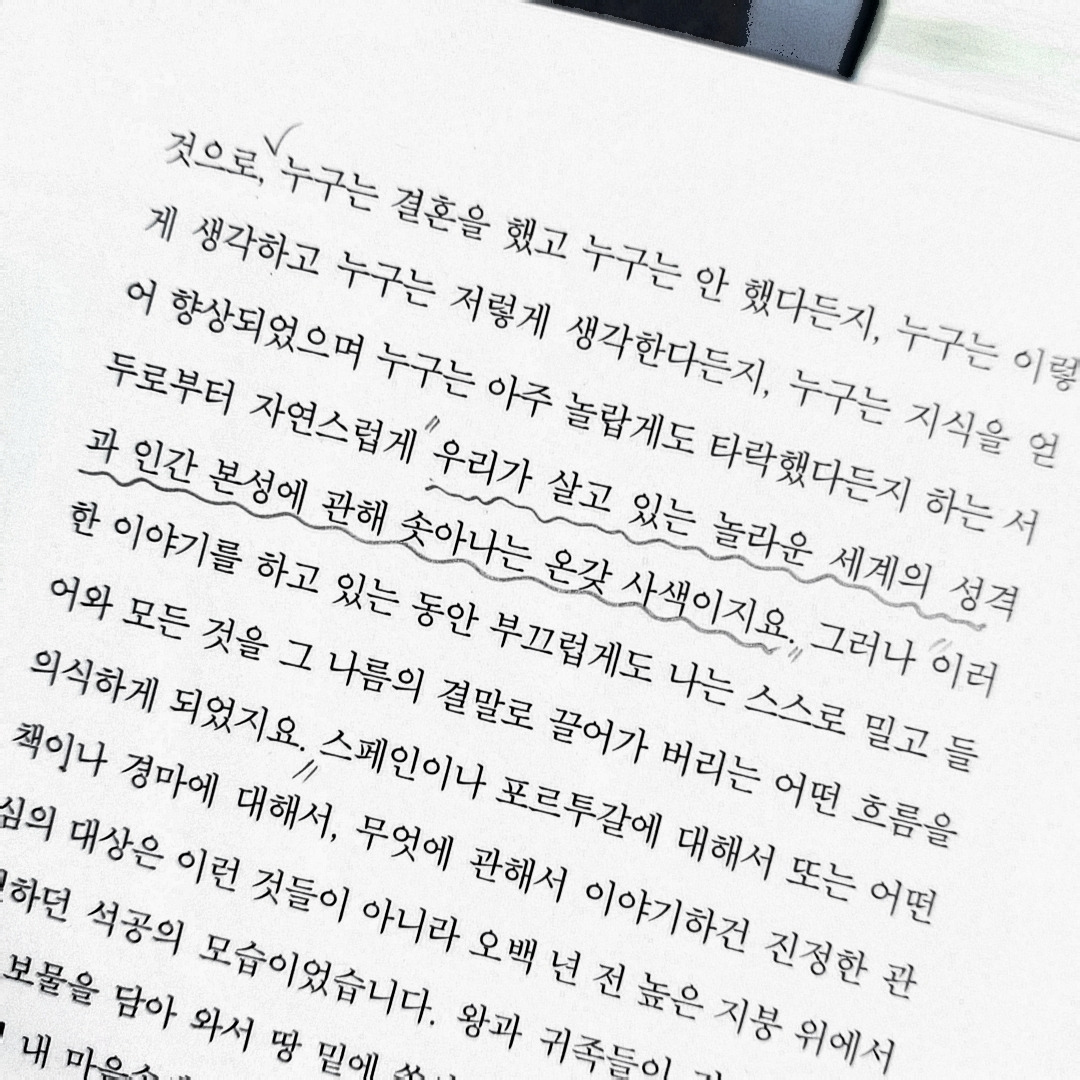 것으로, 누구는 결혼을 했고 누구는 안 했다든지, 누구는 이렇
게 생각하고 누구는 저렇게 생각한다든지, 누구는 지식을 얻
어 향상되었으며 누구는 아주 놀랍게도 타락했다든지 하는 서
두로부터 자연스럽게 우리가 살고 있는 놀라운 세계의 성격
과 인간 본성에 관해 솟아나는 온갖 사색이지요. 그러나 이러
한 이야기를 하고 있는 동안 부끄럽게도 나는 스스로 밀고 들
어와 모든 것을 그 나름의 결말로 끌어가 버리는 어떤 흐름을
의식하게 되었지요. 스페인이나 포르투갈에 대해서 또는 어떤
책이나 경마에 대해서, 무엇에 관해서 이야기하건 진정한 관
심의 대상은 이런 것들이 아니라 오백 년 전 높은 지붕 위에서
하던 석공의 모습이었습니다. 왕과 귀족들이
보물을 담아 와서 땅 밑에
내 마음속에